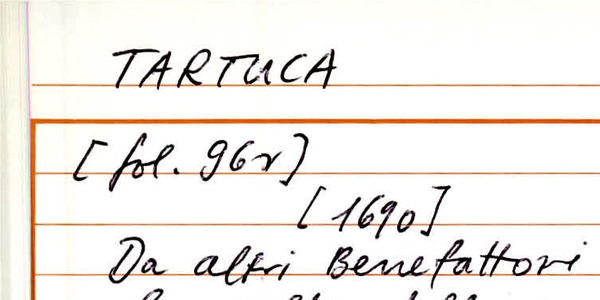 TARTUCA
[fol. 96r]
[1690]
Da altri Benefattori